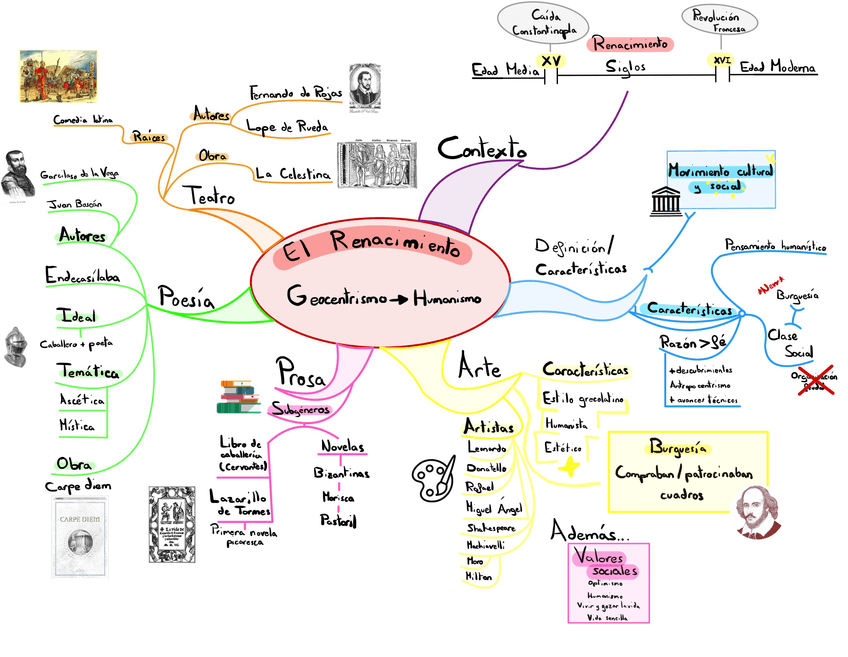 El Renacimiento
Geocentrismo → Humanismo
Contexto
Caída
Constantinopla
Revolución
Francesa
Renacimiento
XV
XVI
Edad Media
Siglos
Edad Moderna
Definición/
Características
Movimiento cultural
y social
Características
Pensamiento humanístico
Burguesía
Clase
Social
Razón > Fé
+ descubrimientos
Antropocentrismo
+ avances técnicos
Arte
Características
Estilo grecolatino
Humanista
Estético
Artistas
Leonardo
Donatello
Rafael
Miguel Ángel
Shakespeare
Machiavelli
Moro
Milton
Burguesía
Compraban/patrocinaban
cuadros
Además...
Valores
sociales
Optimismo
Humanismo
Vivir y gozar la vida
Vida sencilla
Prosa
Subgéneros
Libro de
caballería
(Cervantes)
Lazarillo
de Tormes
Primera novela
picaresca
Novelas
Bizantinas
Morisca
Pastoril
Poesía
Garcilaso de la Vega
Juan Boscán
Autores
Endecasílaba
Ideal
Caballero + poeta
Temática
Ascética
Mística
Obra
Carpe diem
CARPE DIEM
Teatro
Raíces
Comedia latina
Autores
Fernando de Rojas
Lope de Rueda
Obra
La Celestina